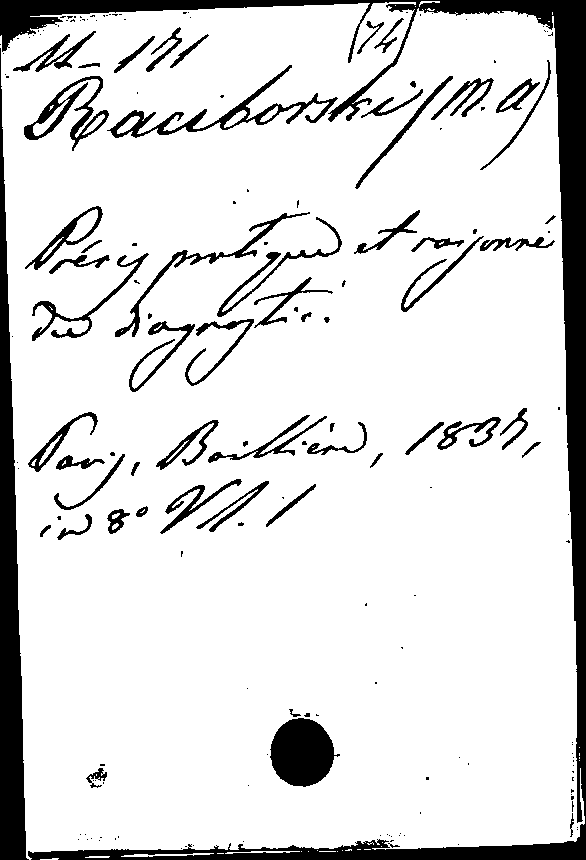 11-171 (74)
Raciborski (M. A)
Précis pratique et raisonné
du diagnostic.
Paris, Baillière, 1837,
in 8° Vl. 1